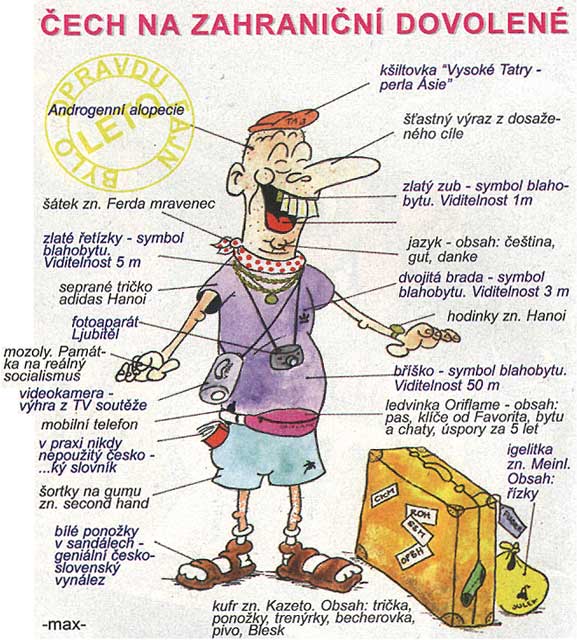 ČECH NA ZAHRANIČNÍ DOVOLENÉ
BYLO OPRAVDU TAJN
LETO
kšiltovka "Vysoké Tatry -
perla Ásie"
Androgenní alopecie
TAJ
šťastný výraz z dosaže-
ného cíle
zlatý zub - symbol blaho-
bytu. Viditelnost 1m
šátek zn. Ferda mravenec
zlaté řetízky - symbol
blahobytu.
Viditelnost 5 m
jazyk - obsah: čeština,
gut, danke
dvojitá brada - symbol
blahobytu. Viditelnost 3 m
seprané tričko
adidas Hanoi
hodinky zn. Hanoi
fotoaparát
Ljubitěl
mozoly. Památ-
ka na reálný
socialismus
bříško - symbol blahobytu.
Viditelnost 50 m
videokamera -
výhra z TV soutěže
ledvinka Oriflame - obsah:
pas, klíče od Favorita, bytu
a chaty, úspory za 5 let
mobilní telefon
v praxi nikdy
nepoužitý česko -
...ký slovník
igelitka
zn. Meinl.
Obsah:
řízky
šortky na gumu
zn. second hand
ČKM
ROH
SSM
OPBH
bílé ponožky
v sandálech -
geniální česko-
slovenský
vynález
JULEK
kufr zn. Kazeto. Obsah: trička,
ponožky, trenýrky, becherovka,
pivo, Blesk
-max-